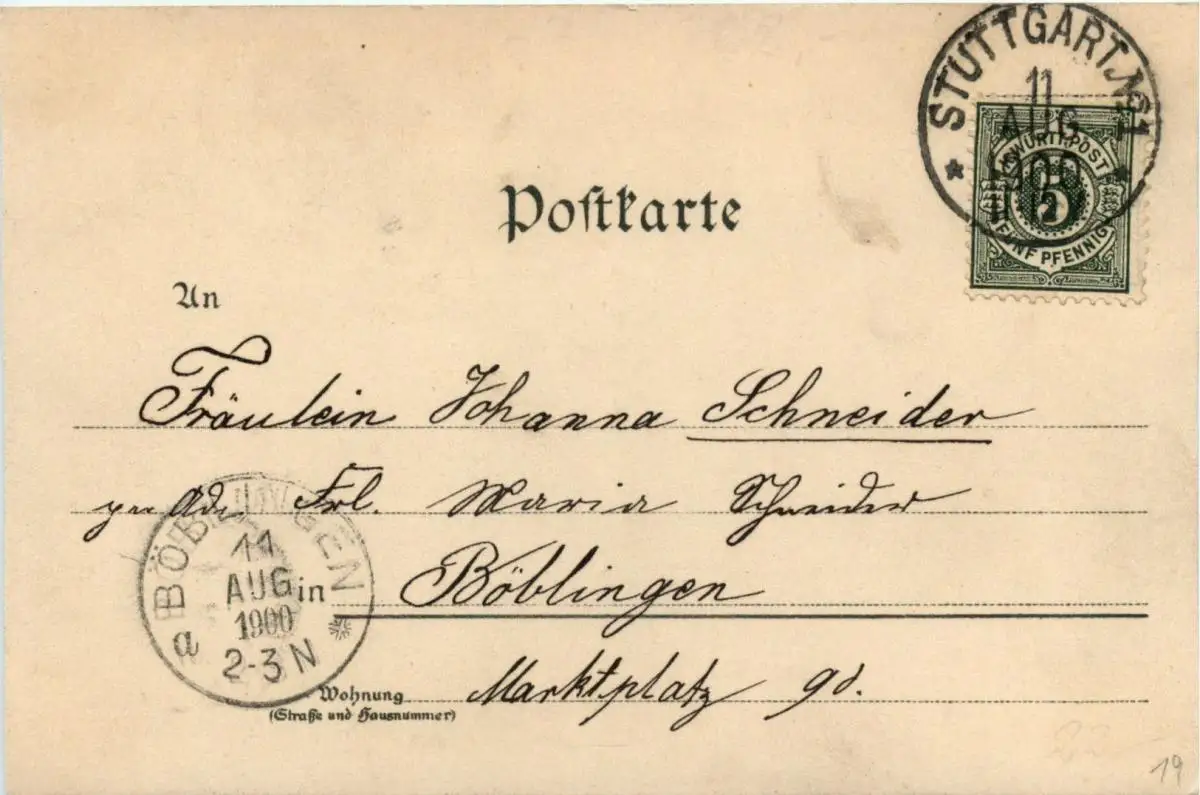 STUTTGART. No 1
11
AUG
1900
11-12
K. WÜRTT. POST
5
FÜNF PFENNIG
Postkarte
An
Fräulein Johanna Schneider
per Adr. Frl. Maria Schneider
BÖBLINGEN
11
AUG
1900
2-3 N
a
in Böblingen
Wohnung
(Straße und Hausnummer)
Marktplatz
19